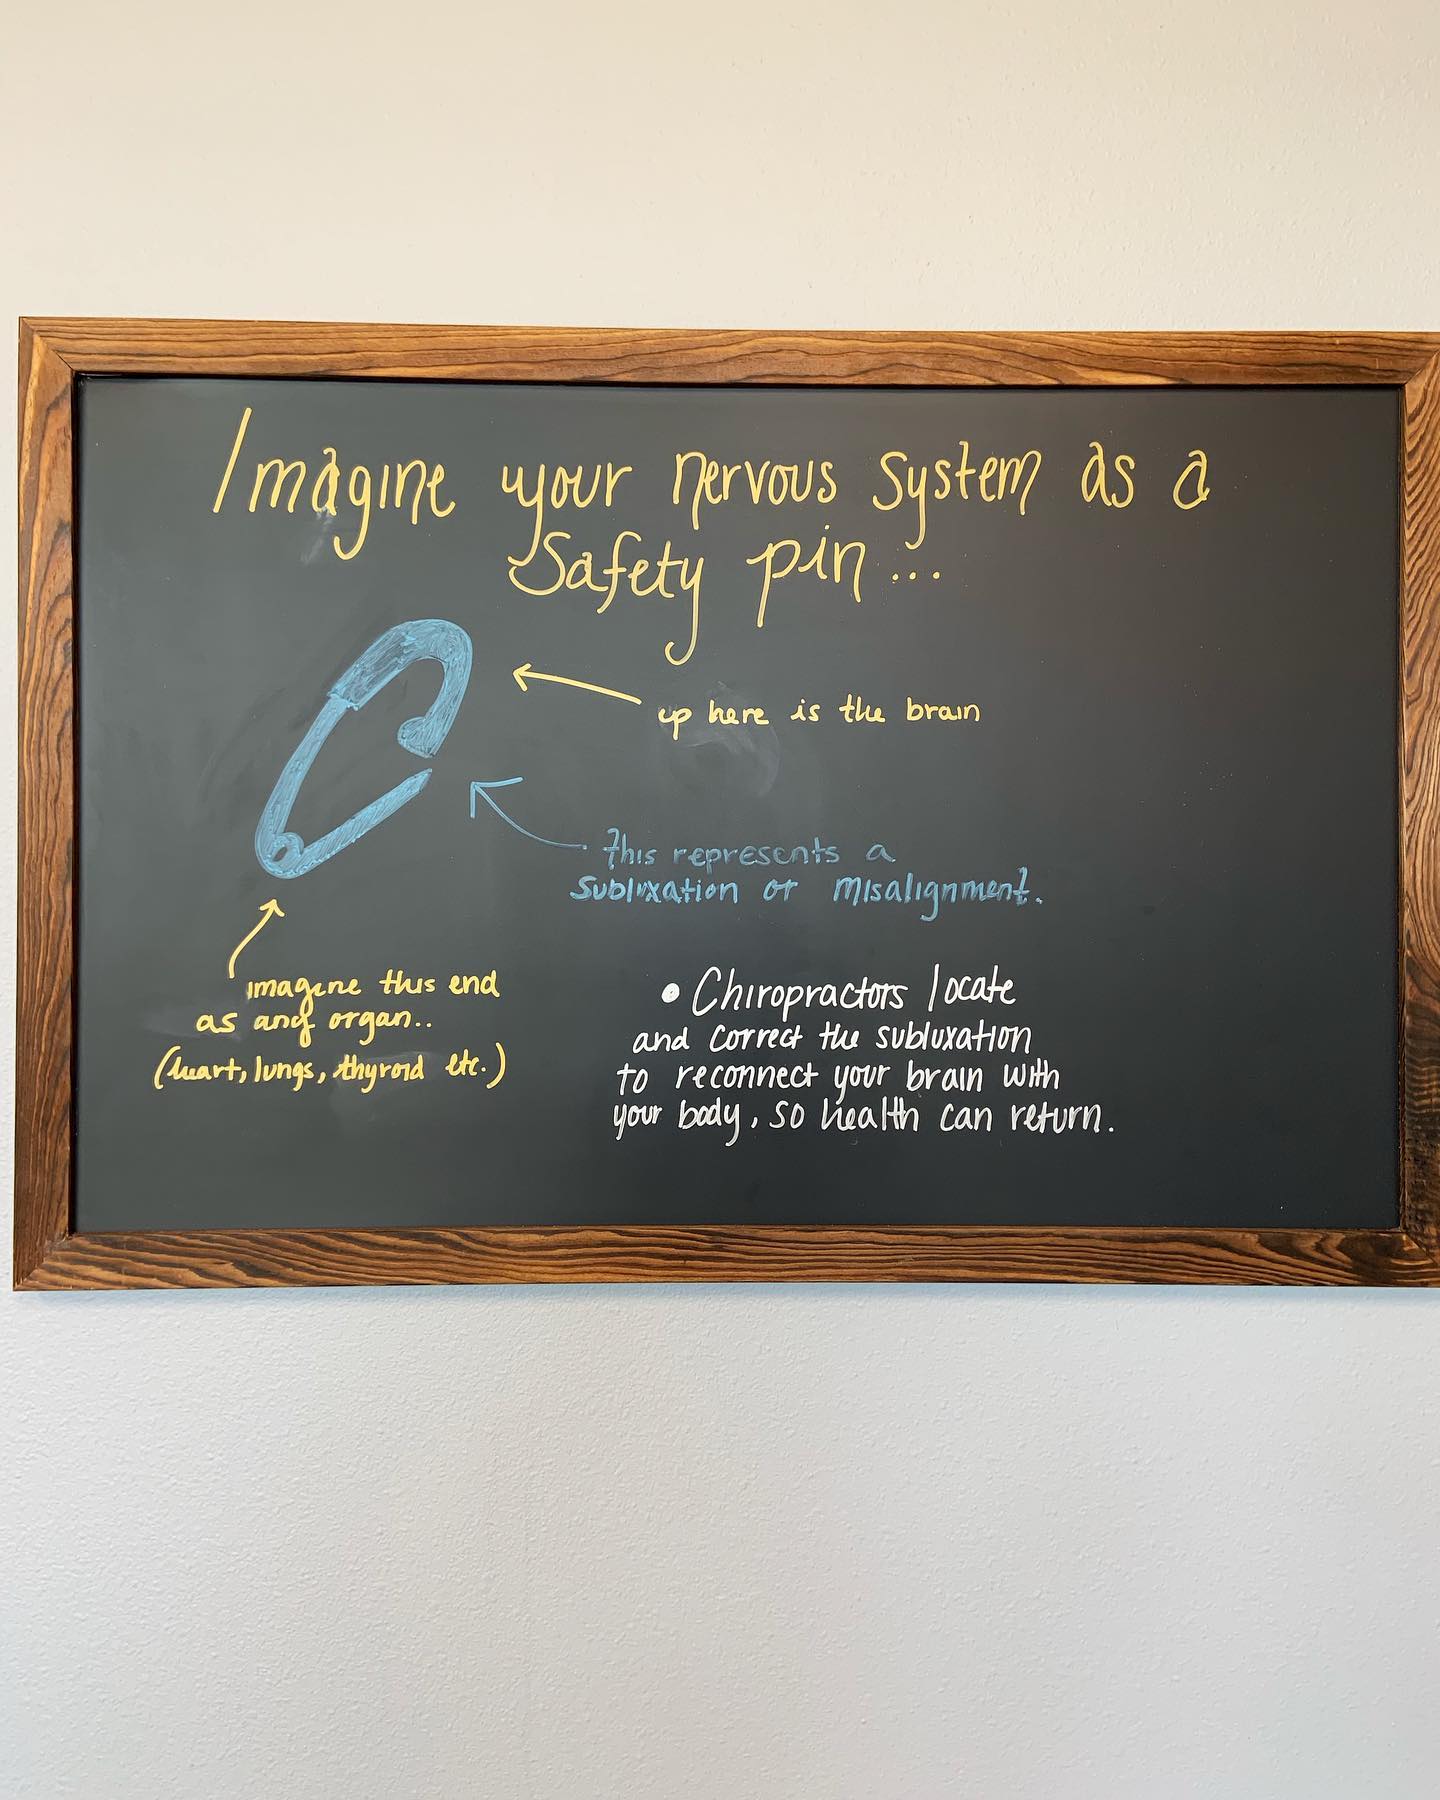 Imagine your nervous system as a
Safety pin...
up here is the brain
This represents a
Subluxation or misalignment.
imagine this end
as any organ..
(heart, lungs, thyroid etc.)
• Chiropractors locate
and correct the subluxation
to reconnect your brain with
your body, so health can return.